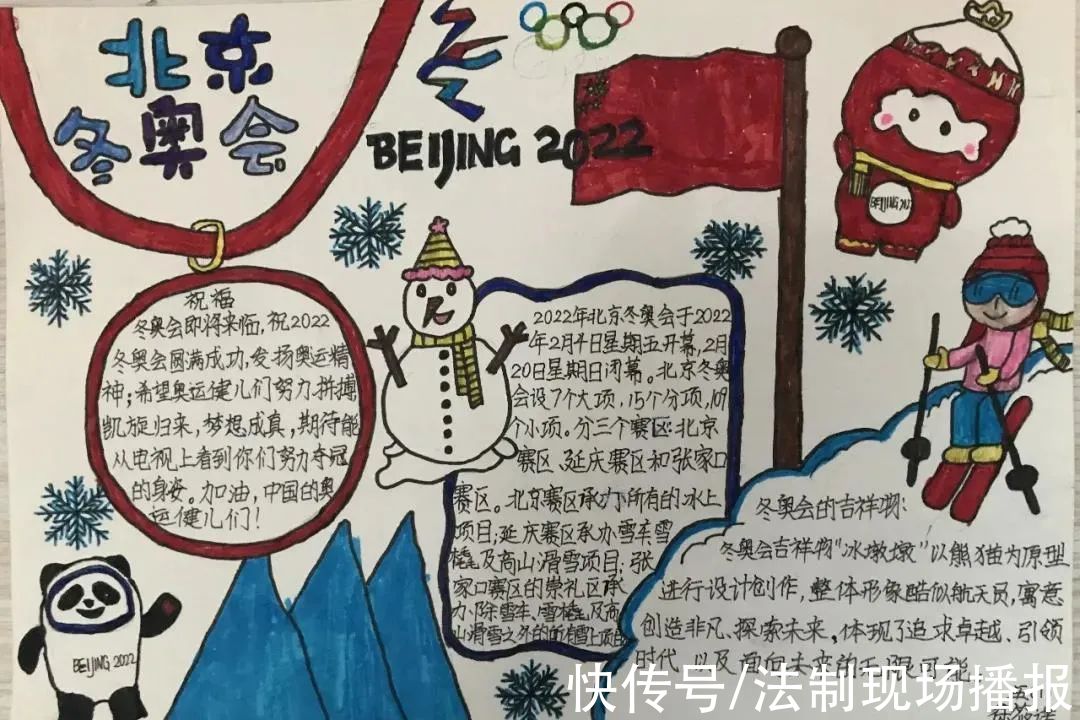 北京
冬奥会
BEIJING 2022
祝福
冬奥会即将来临,祝2022
冬奥会圆满成功,发扬奥运精
神;希望奥运健儿们努力拼搏
凯旋归来,梦想成真,期待能
从电视上看到你们努力夺冠
的身姿。加油,中国的奥
运健儿们!
2022年北京冬奥会于2022
年2月4日星期五开幕,2月
20日星期日闭幕。北京冬奥
会设7个大项,15个分项,109
个小项。分三个赛区:北京
赛区、延庆赛区和张家口
赛区。北京赛区承办所有的冰上
项目;延庆赛区承办雪车雪
橇及高山滑雪项目;张
家口赛区的崇礼区承
办除雪车、雪橇及高
山滑雪之外的所有雪上项目
BEIJING 202
冬奥会的吉祥物:
冬奥会吉祥物"冰墩墩"以熊猫为原型
进行设计创作,整体形象酷似航天员,寓意
创造非凡、探索未来,体现了追求卓越、引领
时代,以及面向未来的无限可能
BEIJING 2022
快传号/法制现场播报